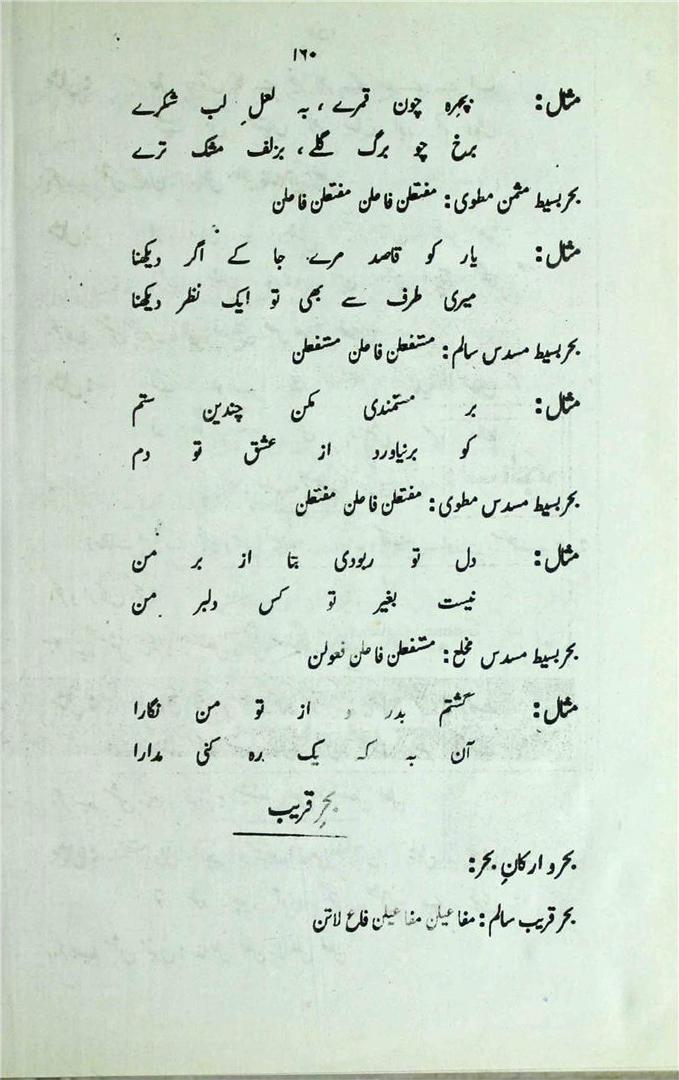 ۱۶۰
مثال: بچہرہ چون قمرے، بہ لعلِ لب شکرے
برخ چو برگ گلے، بزلف مشک ترے
بحر بسیط مثمن مطوی: مفتعلن فاعلن مفتعلن فاعلن
مثال: یار کو قاصد مرے جا کے اگر دیکھنا
میری طرف سے بھی تو ایک نظر دیکھنا
بحر بسیط مسدس سالم: مستفعلن فاعلن مستفعلن
مثال: بر مستمندی مکن چندین ستم
کو برنیاورد از عشق تو دم
بحر بسیط مسدس مطوی: مفتعلن فاعلن مفتعلن
مثال: دل تو ربودی بتا از بر من
نیست بغیر تو کس دلبر من
بحر بسیط مسدس مخلع: مستفعلن فاعلن فعولن
مثال: گشتم بدرد از تو من نگارا
آن بہ کہ یک رہ کنی مدارا
بحرِ قریب
بحر و ارکانِ بحر:
بحر قریب سالم: مفاعیلن مفاعیلن فاع لاتن